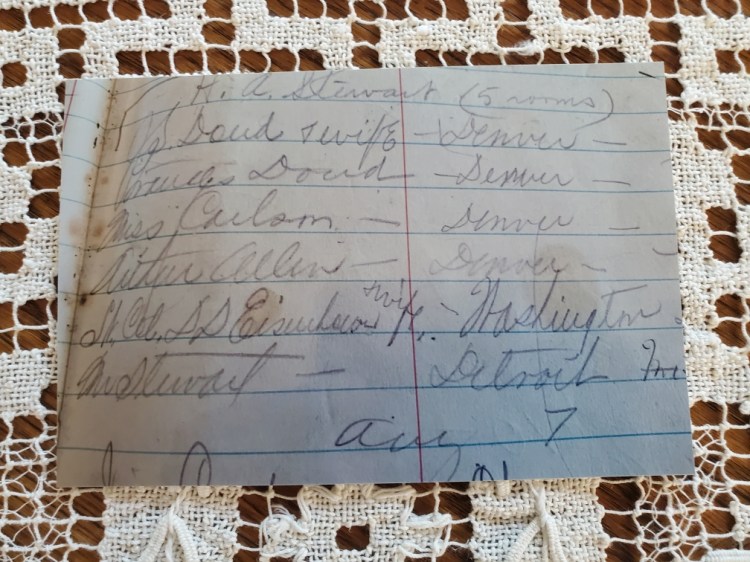 H. A. Stewart (5 rooms)
Doud & wife - Denver -
Frances Doud - Denver -
Miss Carlson - Denver -
Arthur Allen - Denver -
Lt. Col. D D Eisenhower & wife, - Washington
Mr Stewart - Detroit
Aug 7